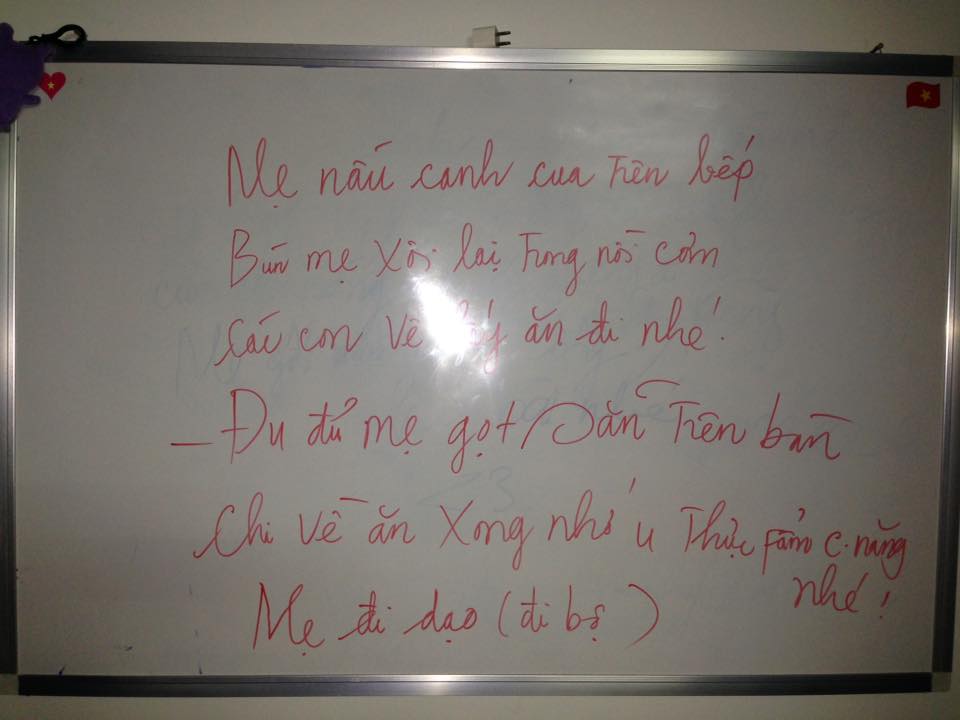 Mẹ nấu canh cua trên bếp
Bún mẹ xôi lại trong nồi cơm
Các con về lấy ăn đi nhé!
- Đu đủ mẹ gọt sẵn trên bàn
Chi về ăn xong nhớ u thực fẩm c. năng
nhé!
Mẹ đi dạo (đi bộ)